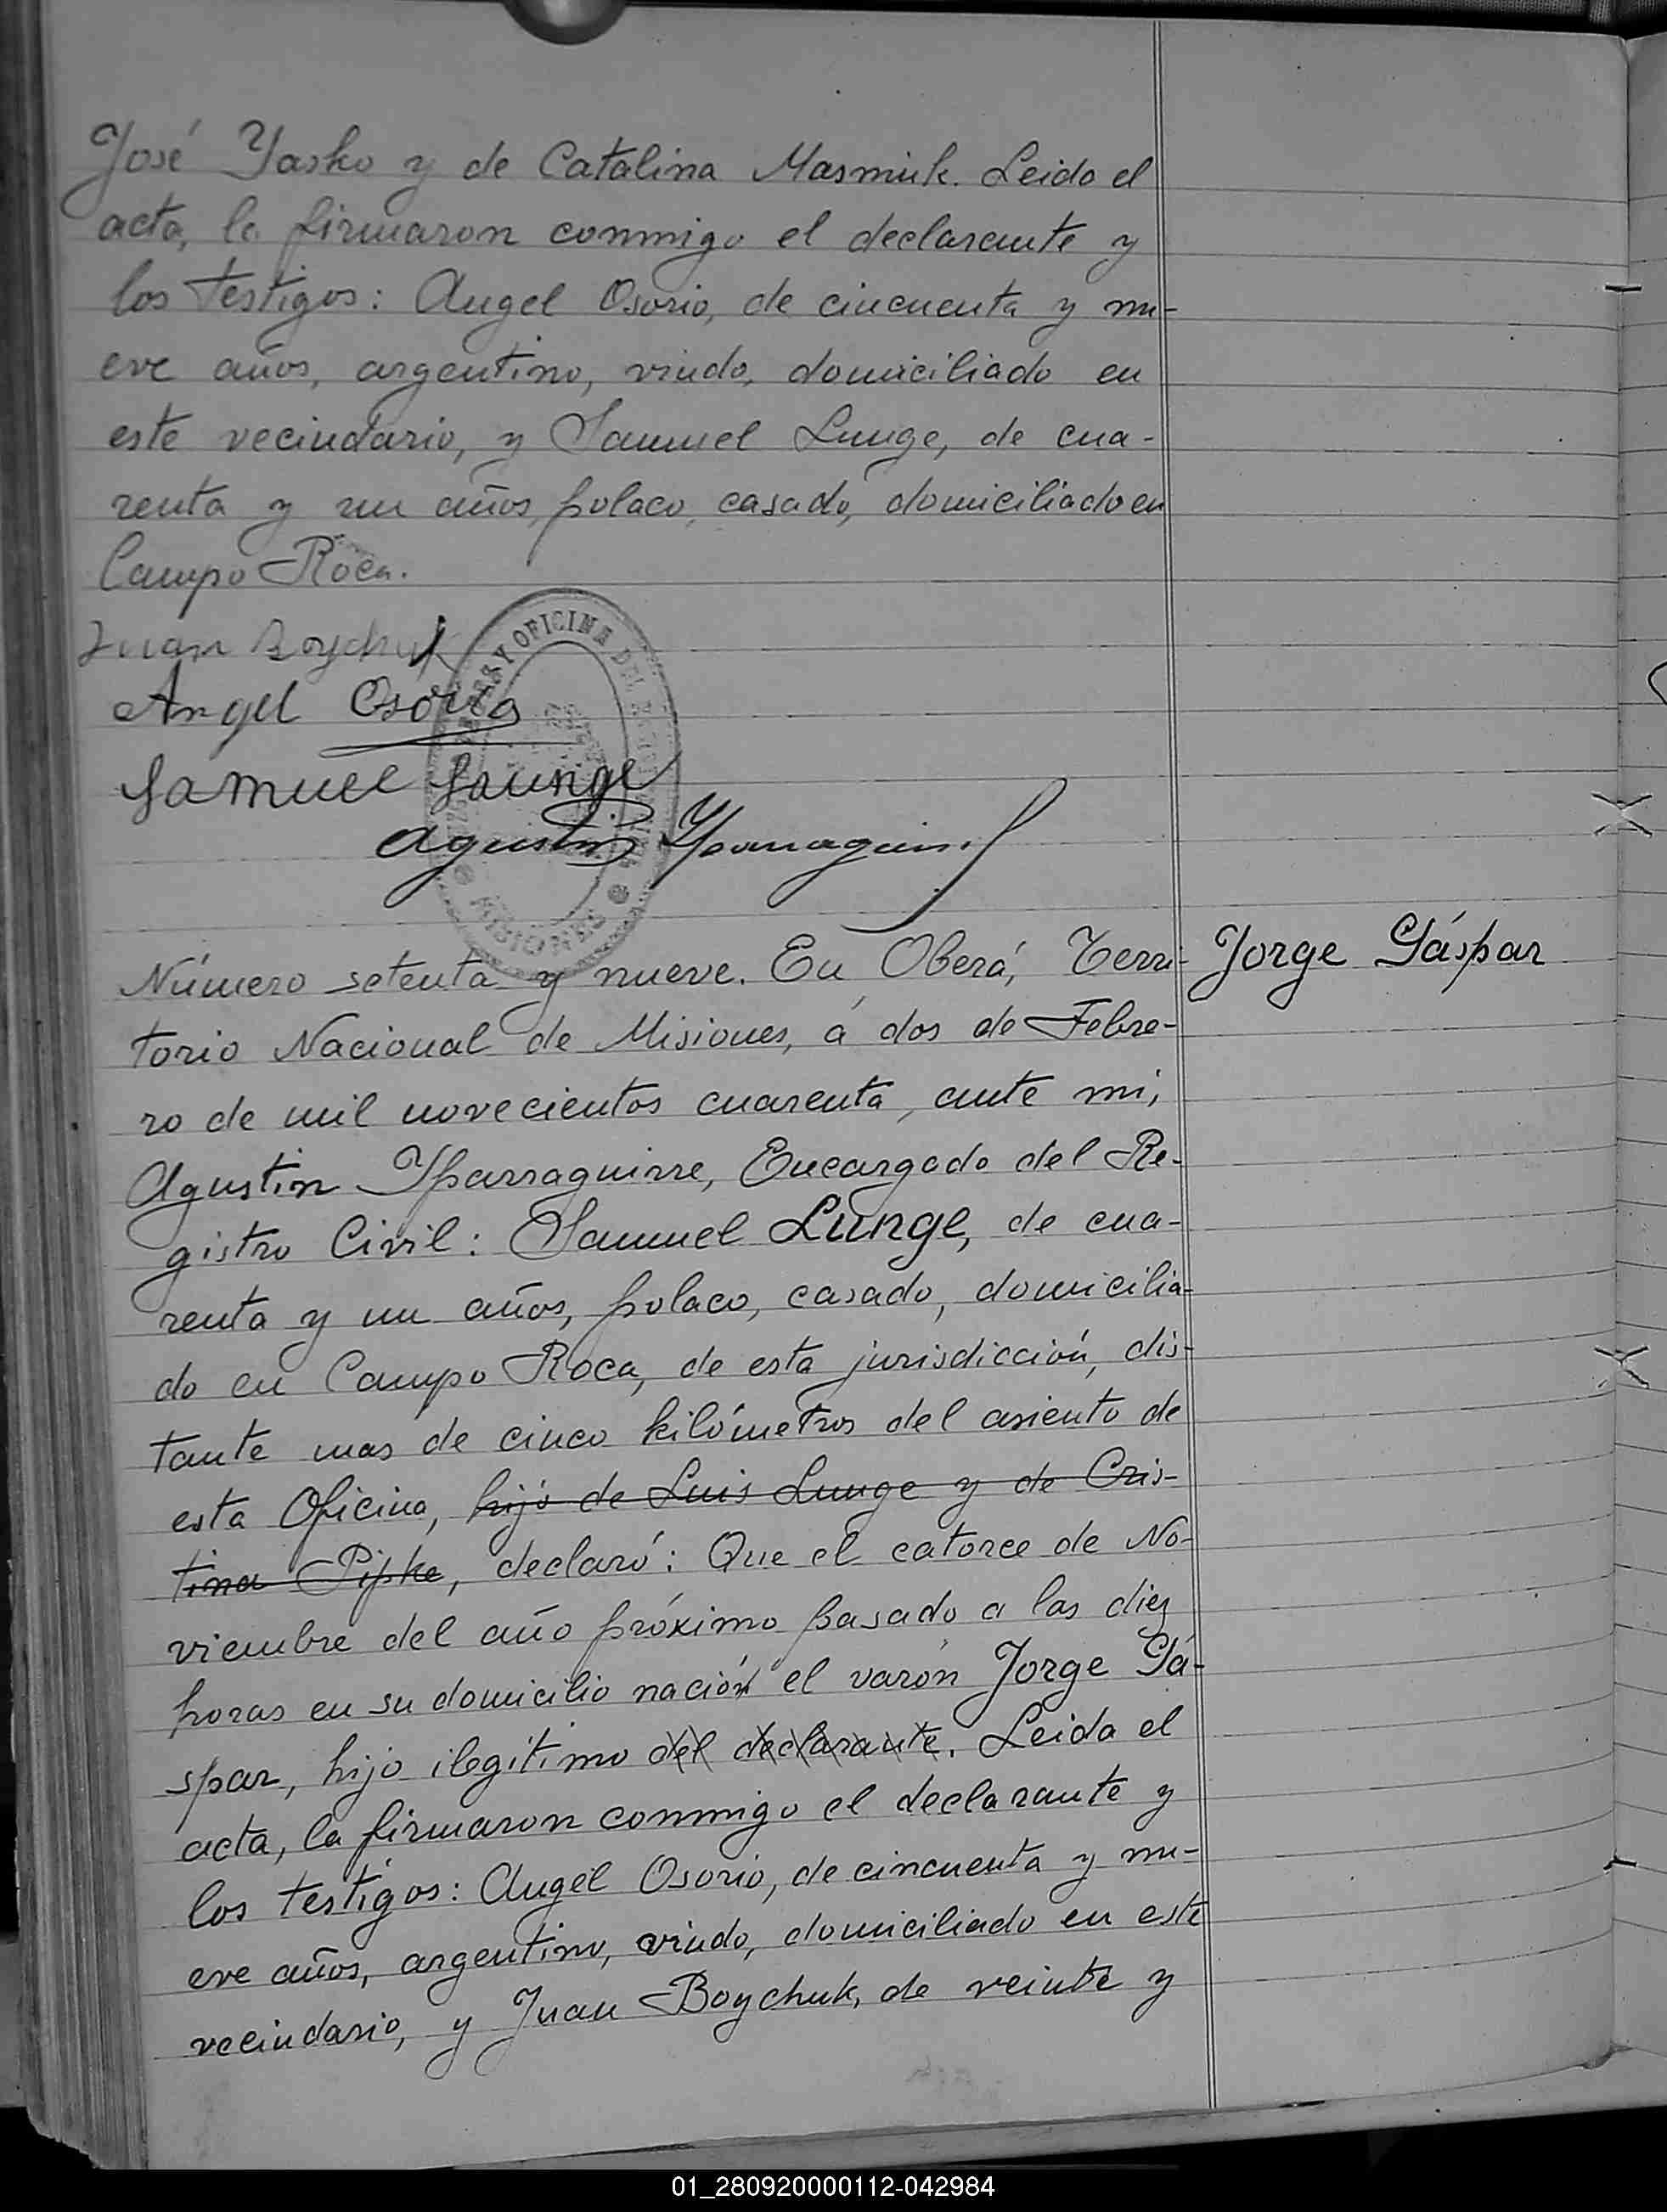 José Yasko y de Catalina Masmiuk. Leido el
acta, la firmaron conmigo el declarante y
los testigos: Angel Osorio, de cincuenta y nu-
eve años, argentino, viudo, domiciliado en
este vecindario, y Samuel Lunge, de cua-
renta y un años, polaco, casado, domiciliado en
Campo Roca.
Juan Boychuk
Angel Osorio
Samuel Launge
Agustin Yparraguirre
Y OFICINA DEL
MISIONES
Número setenta y nueve. En Oberá, Terri-
Jorge Gáspar
torio Nacional de Misiones, á dos de Febre-
ro de mil novecientos cuarenta, ante mi,
Agustin Yparraguirre, Encargado del Re-
gistro Civil: Samuel Lunge, de cua-
renta y un años, polaco, casado, domicilia-
do en Campo Roca, de esta jurisdicción, dis-
tante mas de cinco kilómetros del asiento de
esta Oficina, hijo de Luis Lunge y de Cris-
tina Pipke, declaró: Que el catorce de No-
viembre del año próximo pasado a las diez
horas en su domicilio nación el varón Jorge Gá-
spar, hijo ilegítimo del declarante. Leida el
acta, la firmaron conmigo el declarante y
los testigos: Angel Osorio, de cincuenta y nu-
eve años, argentino, viudo, domiciliado en este
vecindario, y Juan Boychuk, de veinte y
01_280920000112-042984